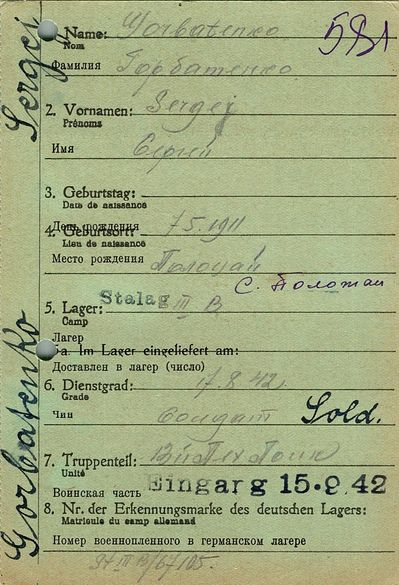 Sergej
Gorbatenko
Name: Gorbatenko
Nom
Фамилия Горбатенко
2. Vornamen: Sergej
Prénoms
Имя Сергей
3. Geburtstag:
Date de naissance
День рождения 7 5. 1911
4. Geburtsort:
Lieu de naissance
Место рождения
С.
5. Lager: Stalag III B
Camp
Лагер
5a. Im Lager eingeliefert am:
Доставлен в лагер (число)
6. Dienstgrad: 17. 8. 42.
Grade
Чин солдат Sold.
7. Truppenteil:
Unité
Воинская часть Eingarg 15.9.42
8. Nr. der Erkennungsmarke des deutschen Lagers:
Matricule du camp allemand
Номер военнопленного в германском лагере
III B/67105.